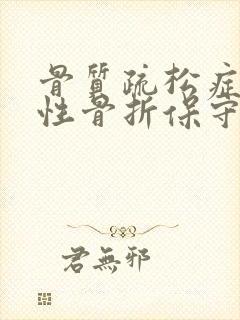 骨質疏松症
性骨折保守
君無邪